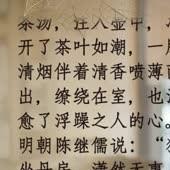 茶汤，注入壶中，
开了茶叶如潮，一
清烟伴着清香喷薄
出，缭绕在室，也
愈了浮躁之人的心。
明朝陈继儒说：“
坐丹房，潇然无事